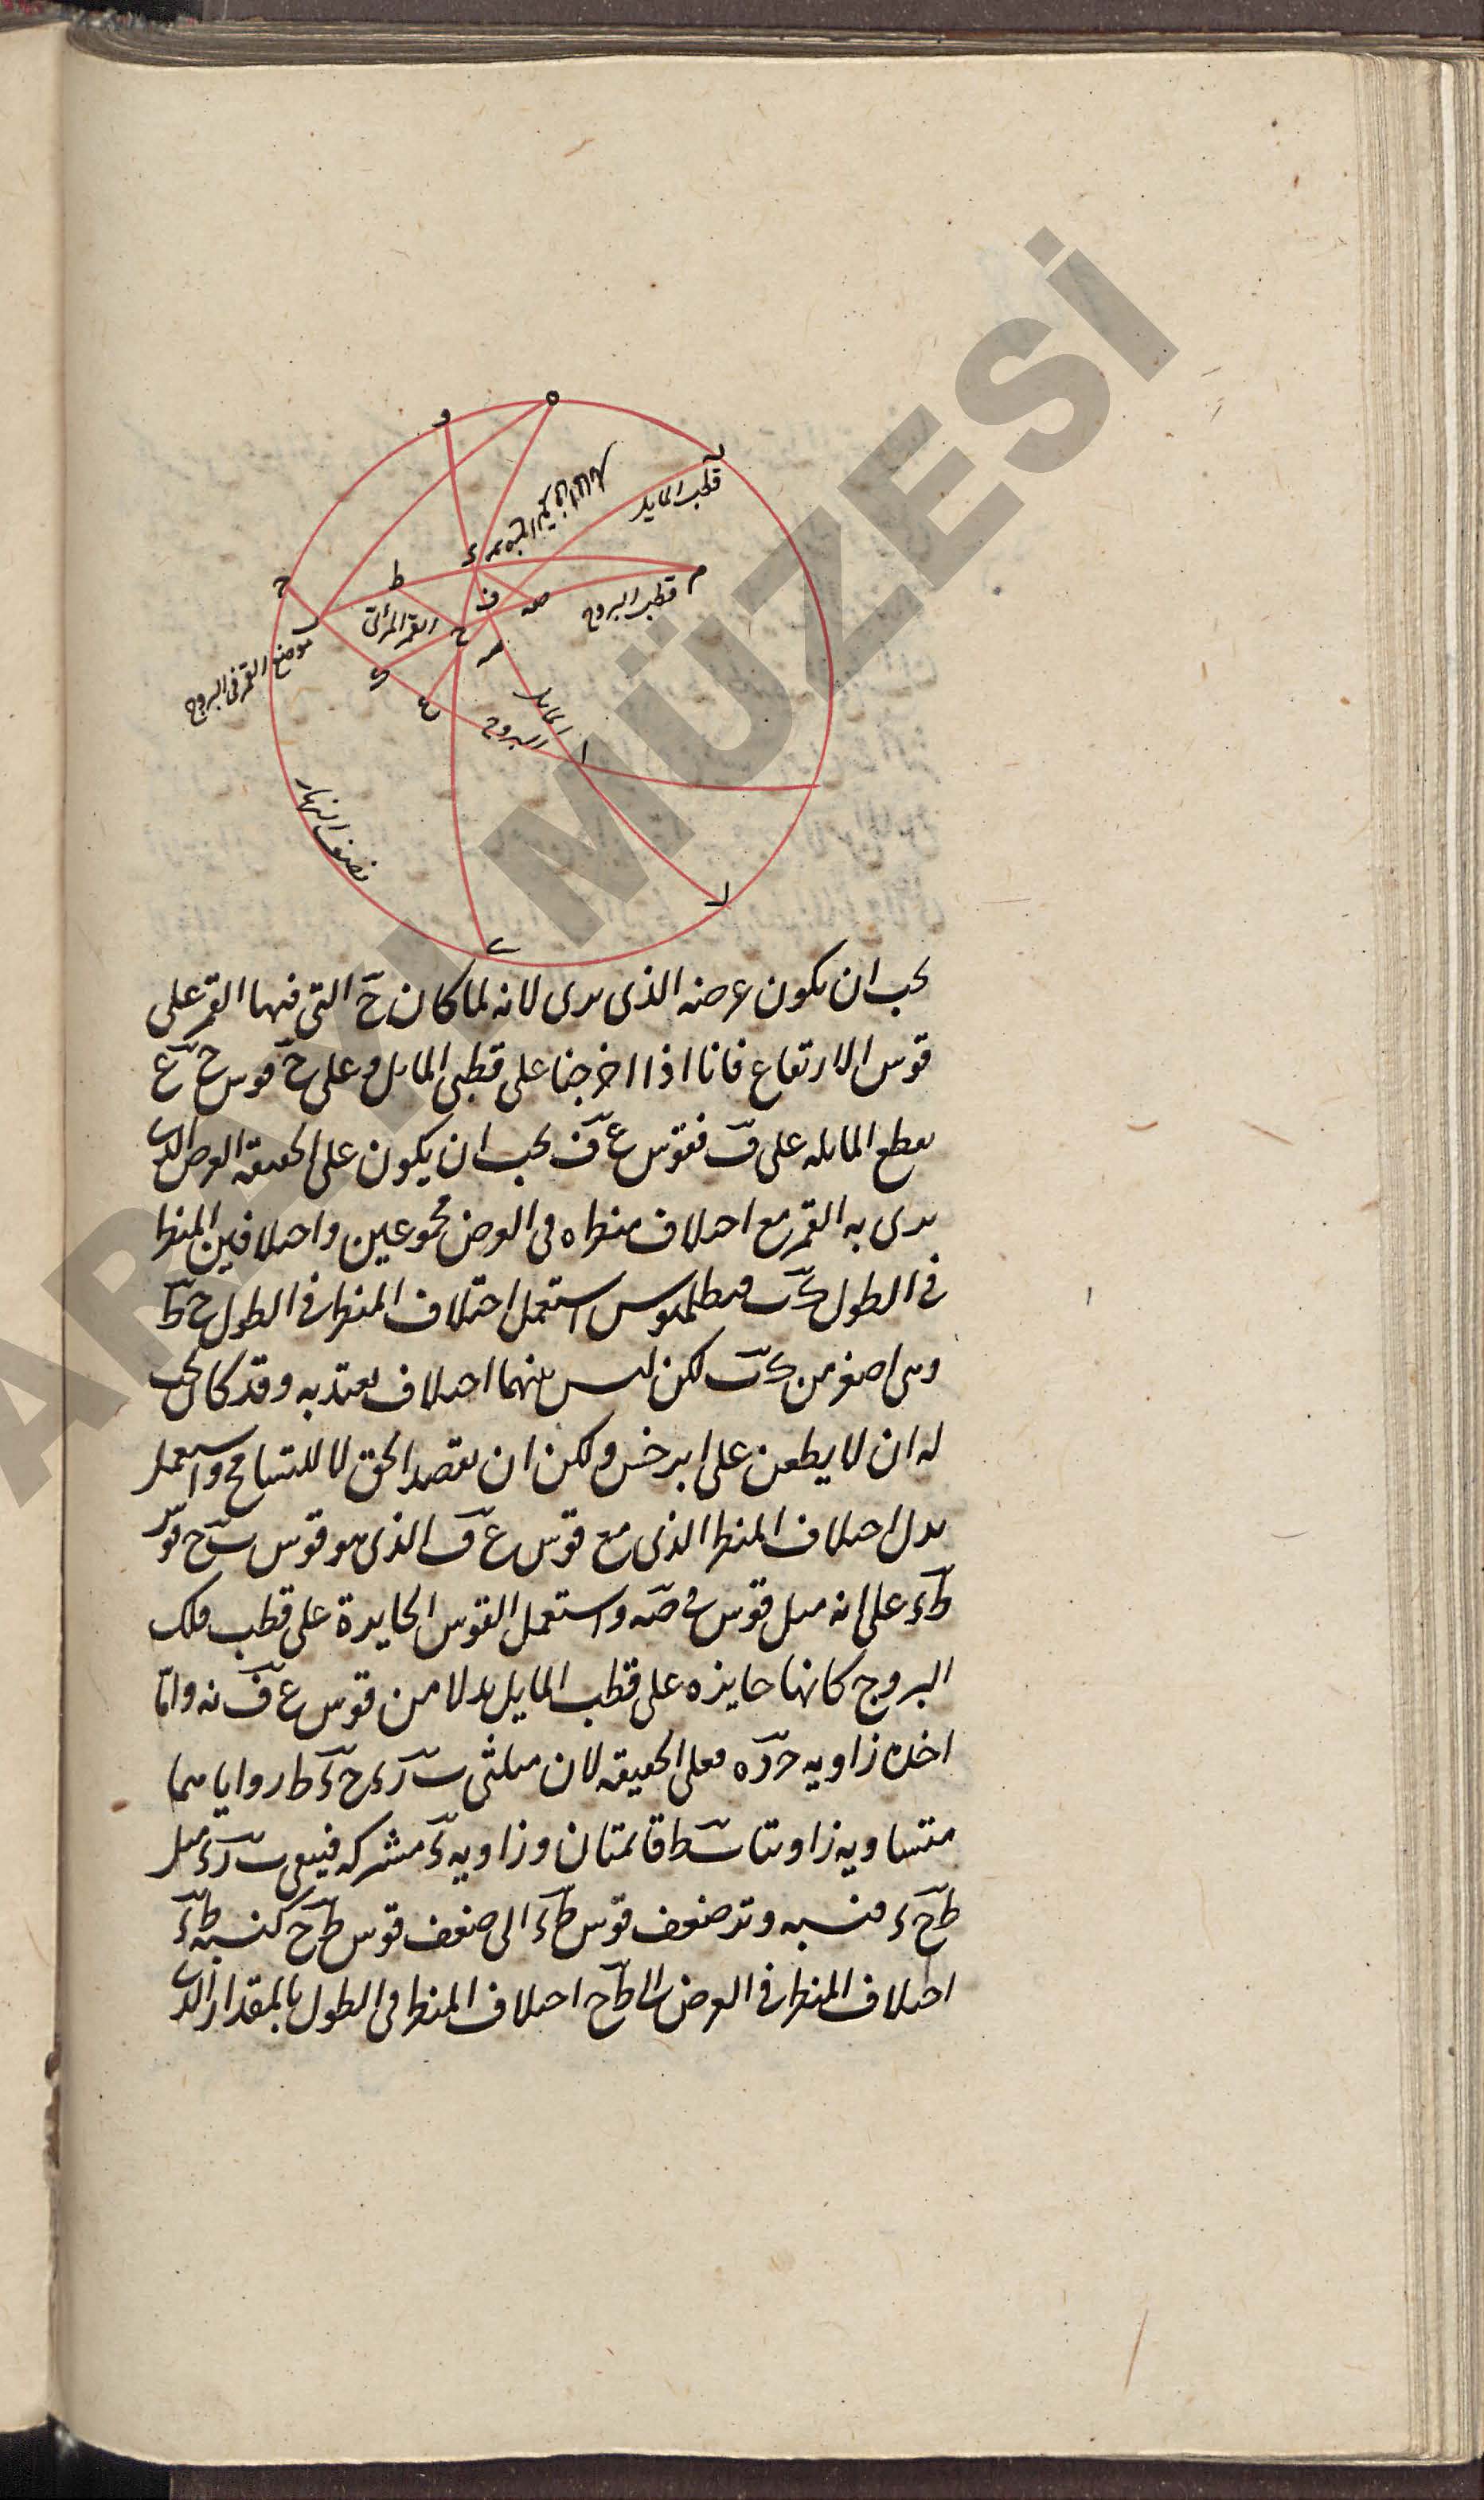 ه
و
ل
قطب المايل
ء
ط
م
قطب البروج
ف
صه
ح
القمر المرئى
ر
ح
موضع القمر فى البروج
ى
ع
المايل
البروج
ا
نصف النهار
لا
ب
يجب ان يكون عرضه الذى يرى لانه لما كان ح التى فيها القمر على
قوس الارتفاع فانا اذا اخرجنا على قطبى المايل وعلى ح قوس ح ع
يقطع المايله على ف فقوس ع ف يجب ان يكون على الحقيقه العرض الذى
يرى به القمر مع اختلاف منظره فى العرض مجموعين واختلاف المنظر
فى الطول فبطلميوس استعمل اختلاف المنظر فى الطول ح ط
وهى اصغر من لكن ليس بينهما اختلاف يعتد به وقد كان يجب
له ان لا يطعن على ابرخس ولكن ان يقصد الحق لا للتسامح واستعمل
بدل اختلاف المنظر الذى مع قوس ع ف الذى هو قوس قوس
ط ء على انه مثل قوس ف صه واستعمل القوس الجايزة على قطب فلك
البروج كانها جايزه على قطب المايل بدلا من قوس ع ف نه واما
اخذه زاويه فعلى الحقيقه لان مثلثى ح ء ط زواياهما
متساويه زاويتا ط قائمتان وزاويه ء مشتركه فيبقى مثل
ط ح ء فنسبه وتر ضعف قوس ط ء الى ضعف قوس ط ح كنسبه ط ء
اختلاف المنظر فى العرض الى ط ح اختلاف المنظر فى الطول بالمقدار الذى